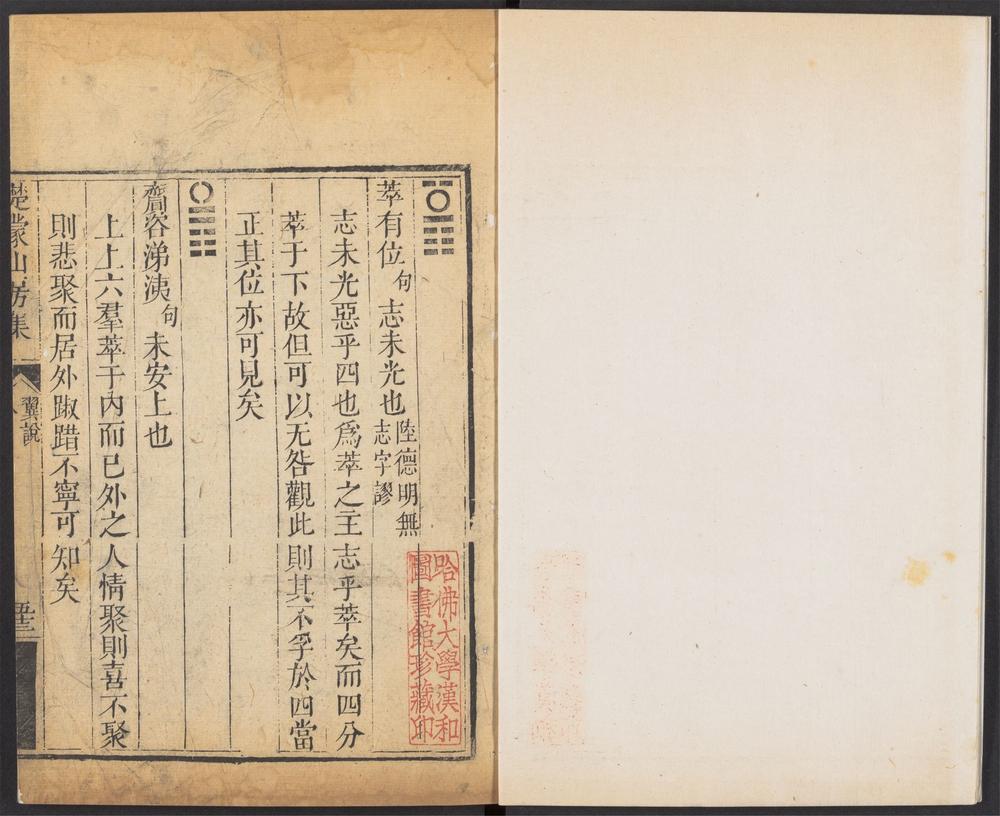 萃有位句志未光也陸德明無志字謬
志未光惡乎四也爲萃之主志乎萃矣而四分
萃于下故但可以无咎觀此則其不孚於四當
正其位亦可見矣
齎咨涕洟句未安上也
上上六羣萃于內而已外之人情聚則喜不聚
則悲聚而居外踧踖不寧可知矣
楚蒙山房集
翼說
哈佛大學漢和
圖書館珍藏印